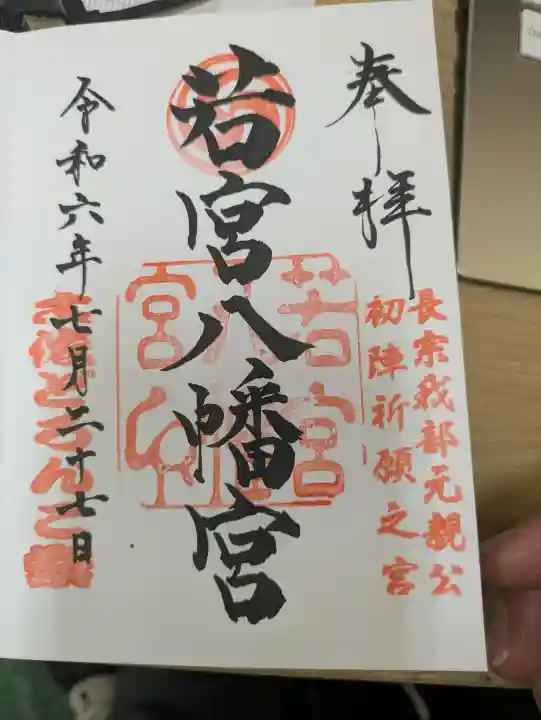 奉拝
長宗我部元親公
初陣祈願之宮
若宮八幡宮
若宮八幡宮
令和六年七月二十七日